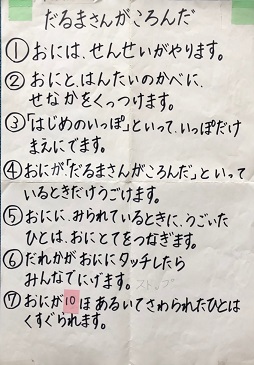 だるまさんがころんだ
①おには、せんせいがやります。
②おにと、はんたいのかべに、
せなかをくっつけます。
③「はじめのいっぽ」といって、いっぽだけ
まえにでます。
④おにが「だるまさんがころんだ」といって
いるときだけうごけます。
⑤おにに、みられているときに、うごいた
ひとは、おにとてをつなぎます。
⑥だれかがおににタッチしたら
みんなでにげます。ストップ
⑦おにが10ほあるいてさわられたひとは
くすぐられます。